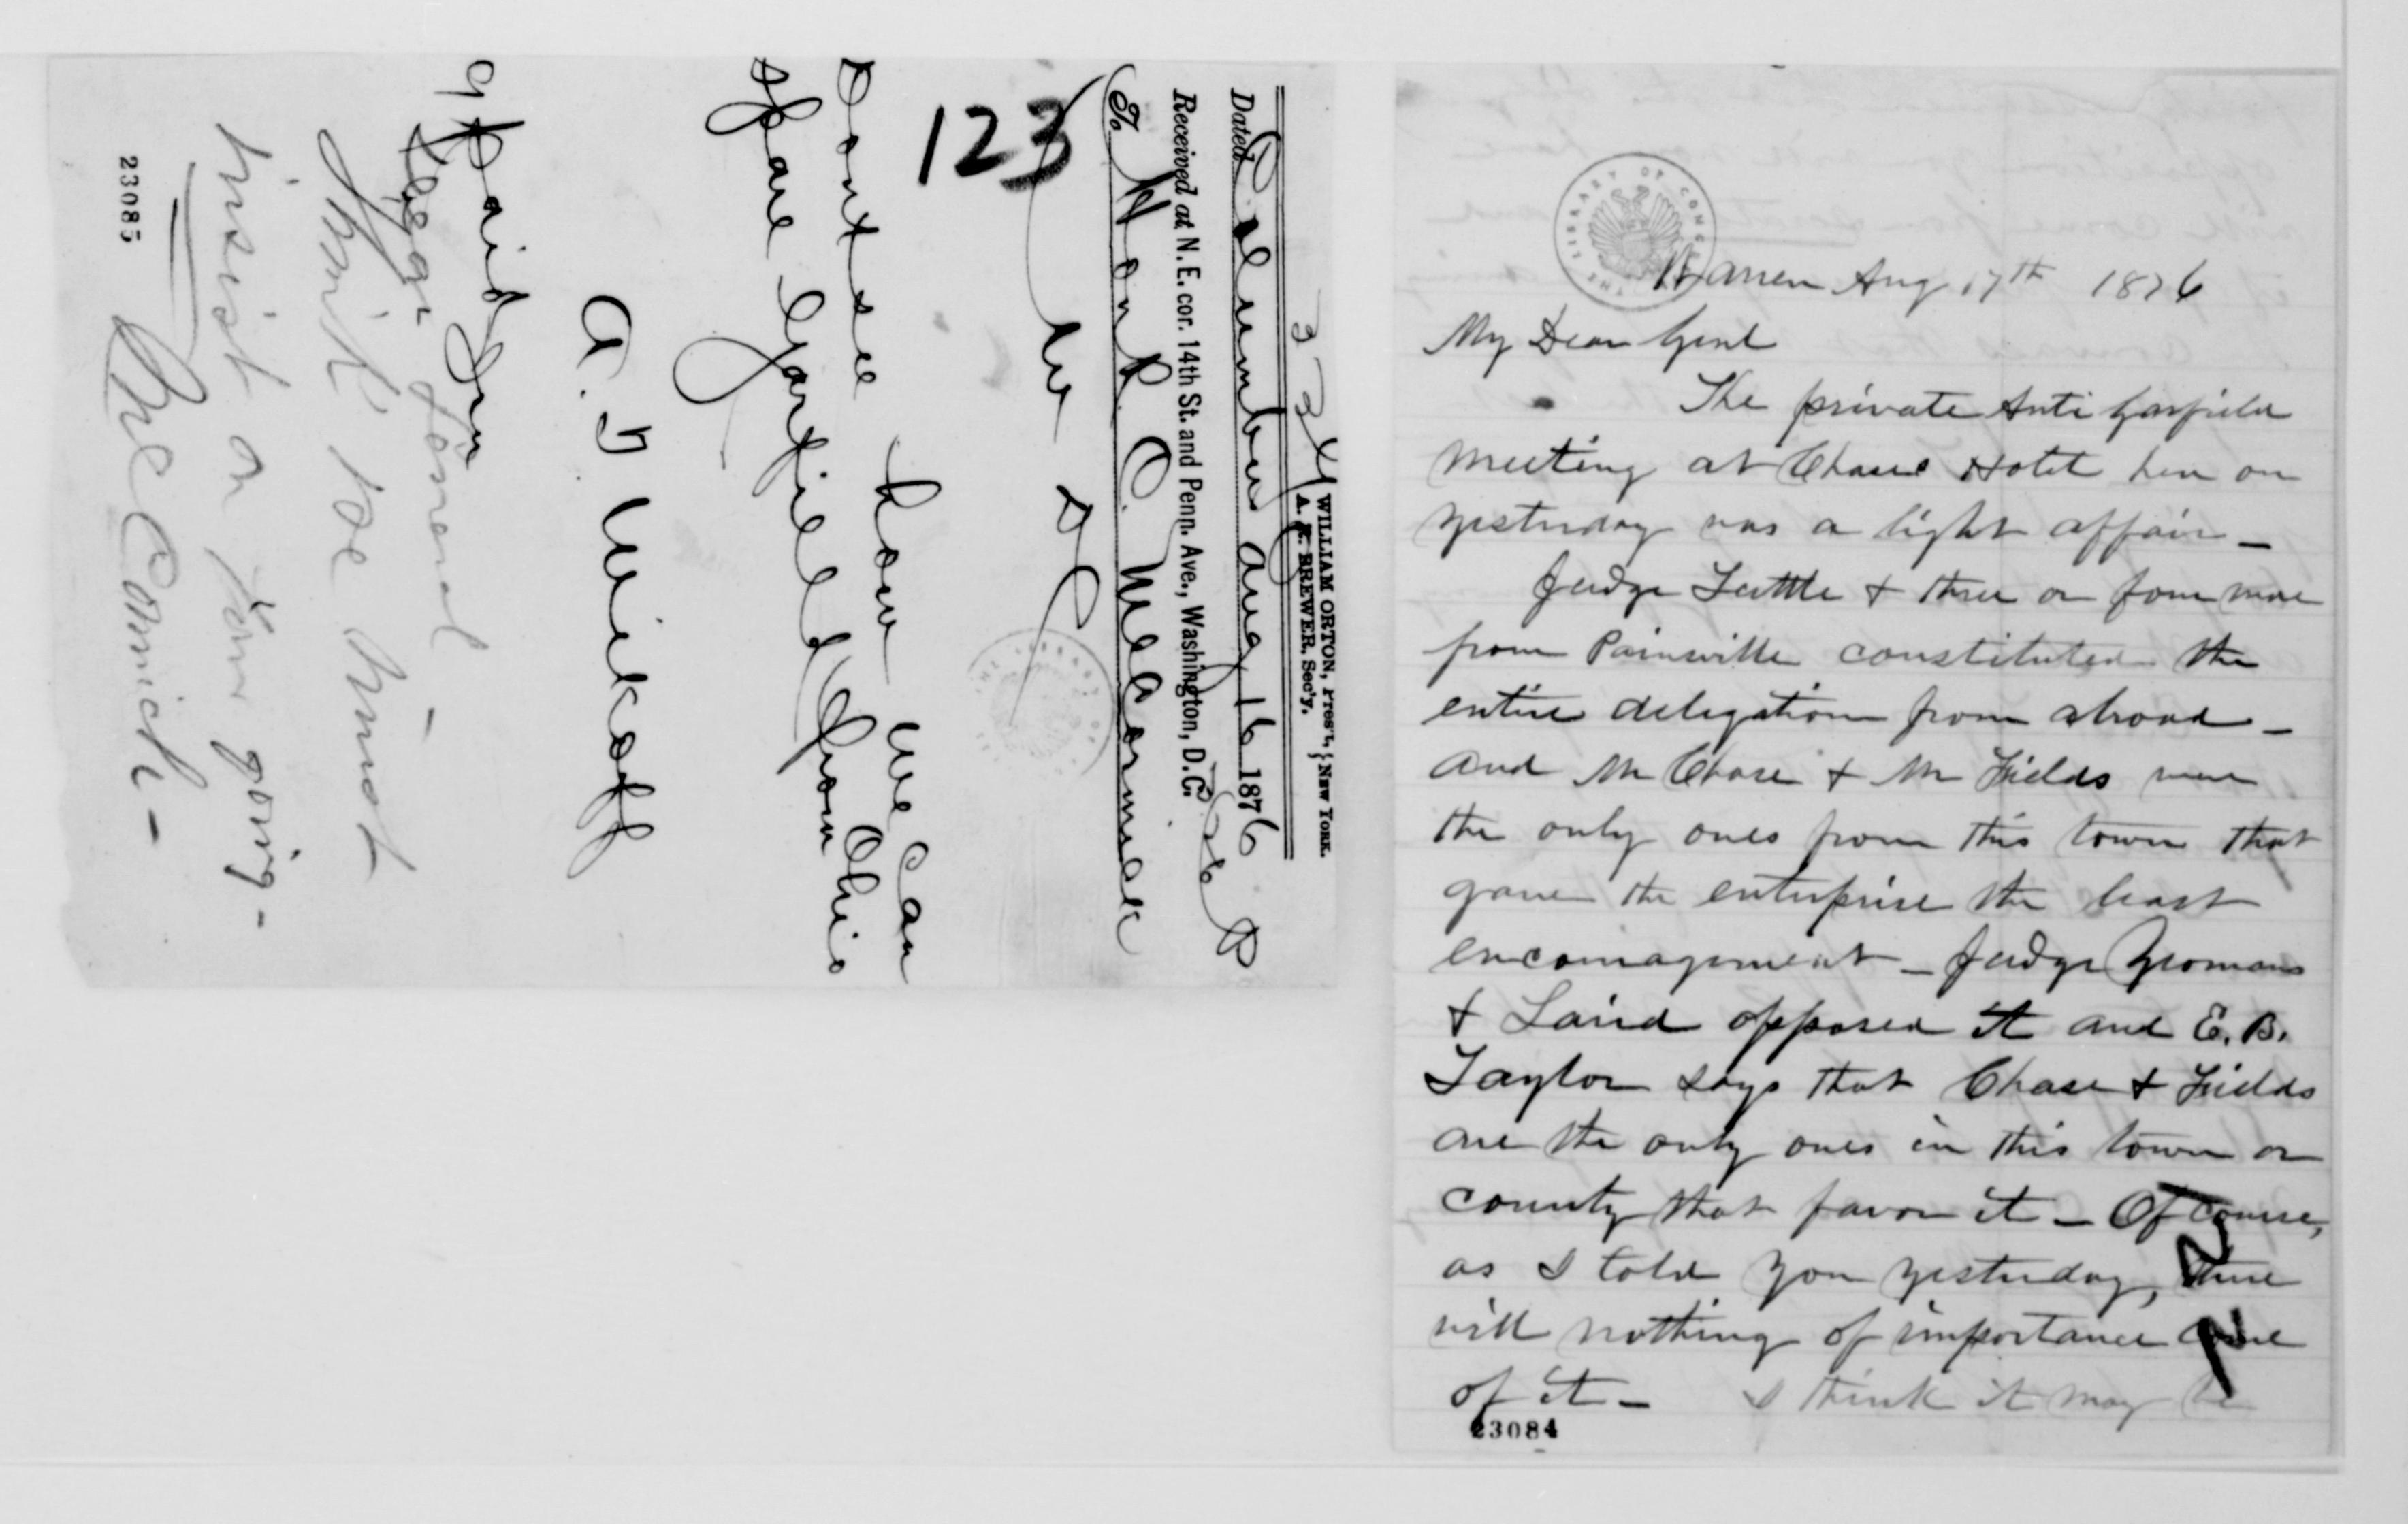 324
WILLIAM ORTON, Pres't, } NEW YORK.
A. R. BREWER, Sec'y.
Dated Columbus Aug 16 1876
Received at N. E. cor. 14th St. and Penn. Ave., Washington, D. C.
To Hon R. C. McCormick
W DC
123
Dont see how we can
spare Garfield from Ohio
A. T Wikoff
9 Paid
Dear General
Think we must
insist on your going -
McCormick -
23085
THE LIBRARY OF CONGRESS
Warren Aug 17th 1876
My Dear Genl
The private Anti Garfield
meeting at Chase Hotel here on
yesterday was a light affair _
Judge Tuttle & three or four more
from Painsville constituted the
entire delegation from abroad _
and Mr Chase & Mr Fields were
the only ones from this town that
gave the enterprise the least
encouragement _ Judge Yeomans
& Laird opposed it and E. B.
Taylor says that Chase & Fields
are the only ones in this town or
county that favor it _ Of course,
as I told you yesterday, there
will nothing of importance come
of it _ I think it may be
23084